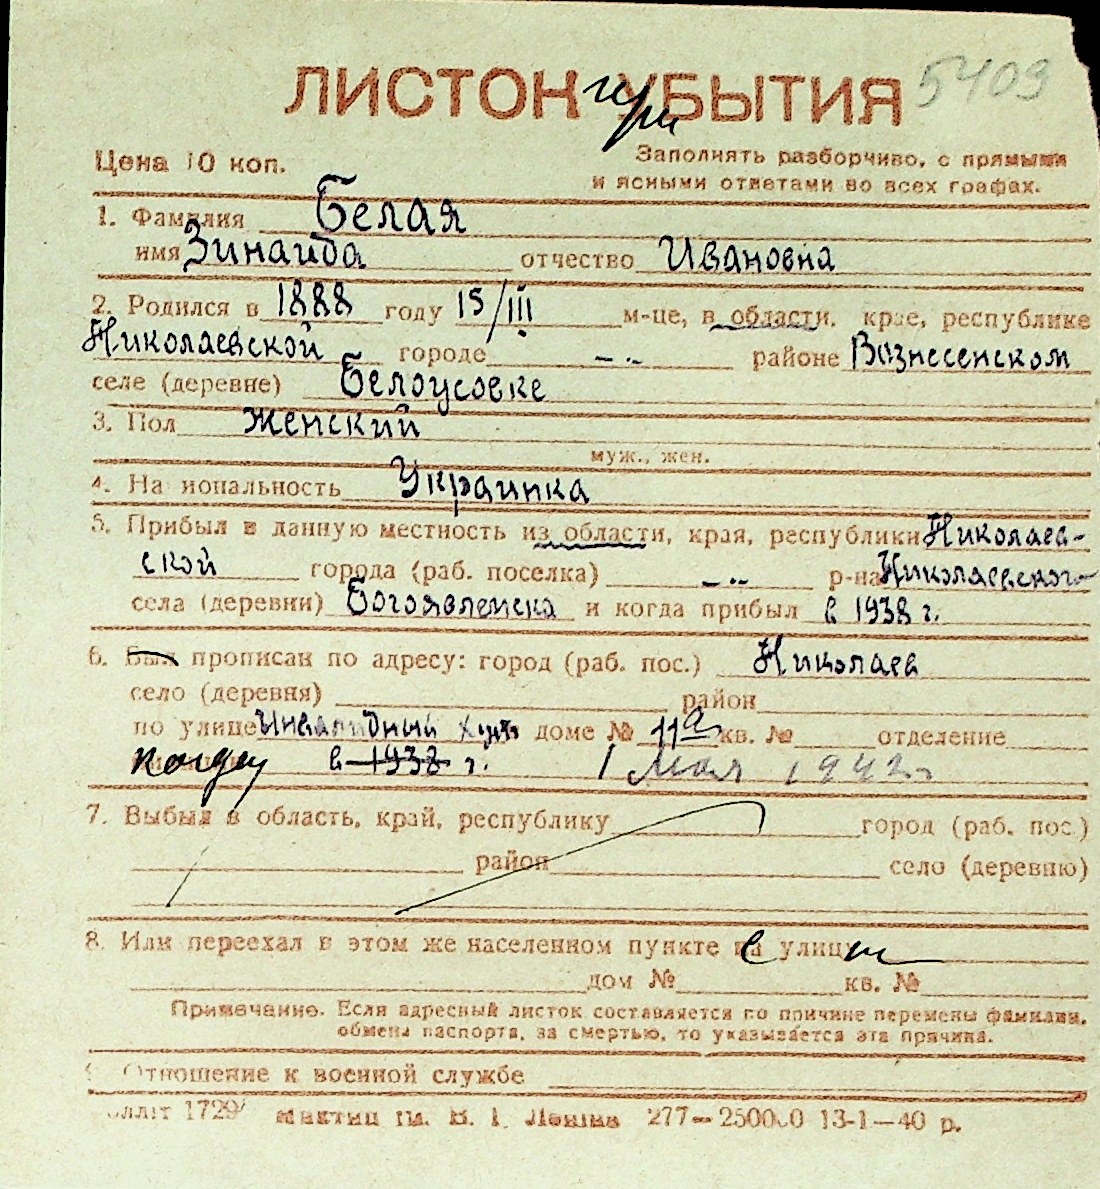 ЛИСТОК при УБЫТИЯ 5409
Цена 10 коп. Заполнять разборчиво, с прямыми
и ясными ответами во всех графах.
1. Фамилия Белая
имя Зинаида отчество Ивановна
2. Родился в 1888 году 15/III м-це, в области, крае, республике
Николаевской городе -"- районе Вознесенском
селе (деревне) Белоусовке
3. Пол женский
муж., жен.
4. Национальность Украинка
5. Прибыл в данную местность из области, края, республики Николаев-
ской города (раб. поселка) -"- р-на Николаевского
села (деревни) Богоявленска и когда прибыл в 1938 г.
6. Был прописан по адресу: город (раб. пос.) Николаев
село (деревня) район
по улице Инвалидный хут. доме № 11а кв. № отделение
в 1938 г. 1 мая 1942
7. Выбыл в область, край, республику город (раб. пос.)
район село (деревню)
8. Или переехал в этом же населенном пункте с улицы
дом № кв. №
Примечание. Если адресный листок составляется по причине перемены фамилии,
обмена паспорта, за смертью, то указывается эта причина.
Отношение к военной службе
1729 В. И. Ленина 277—250000 13-1—40 р.